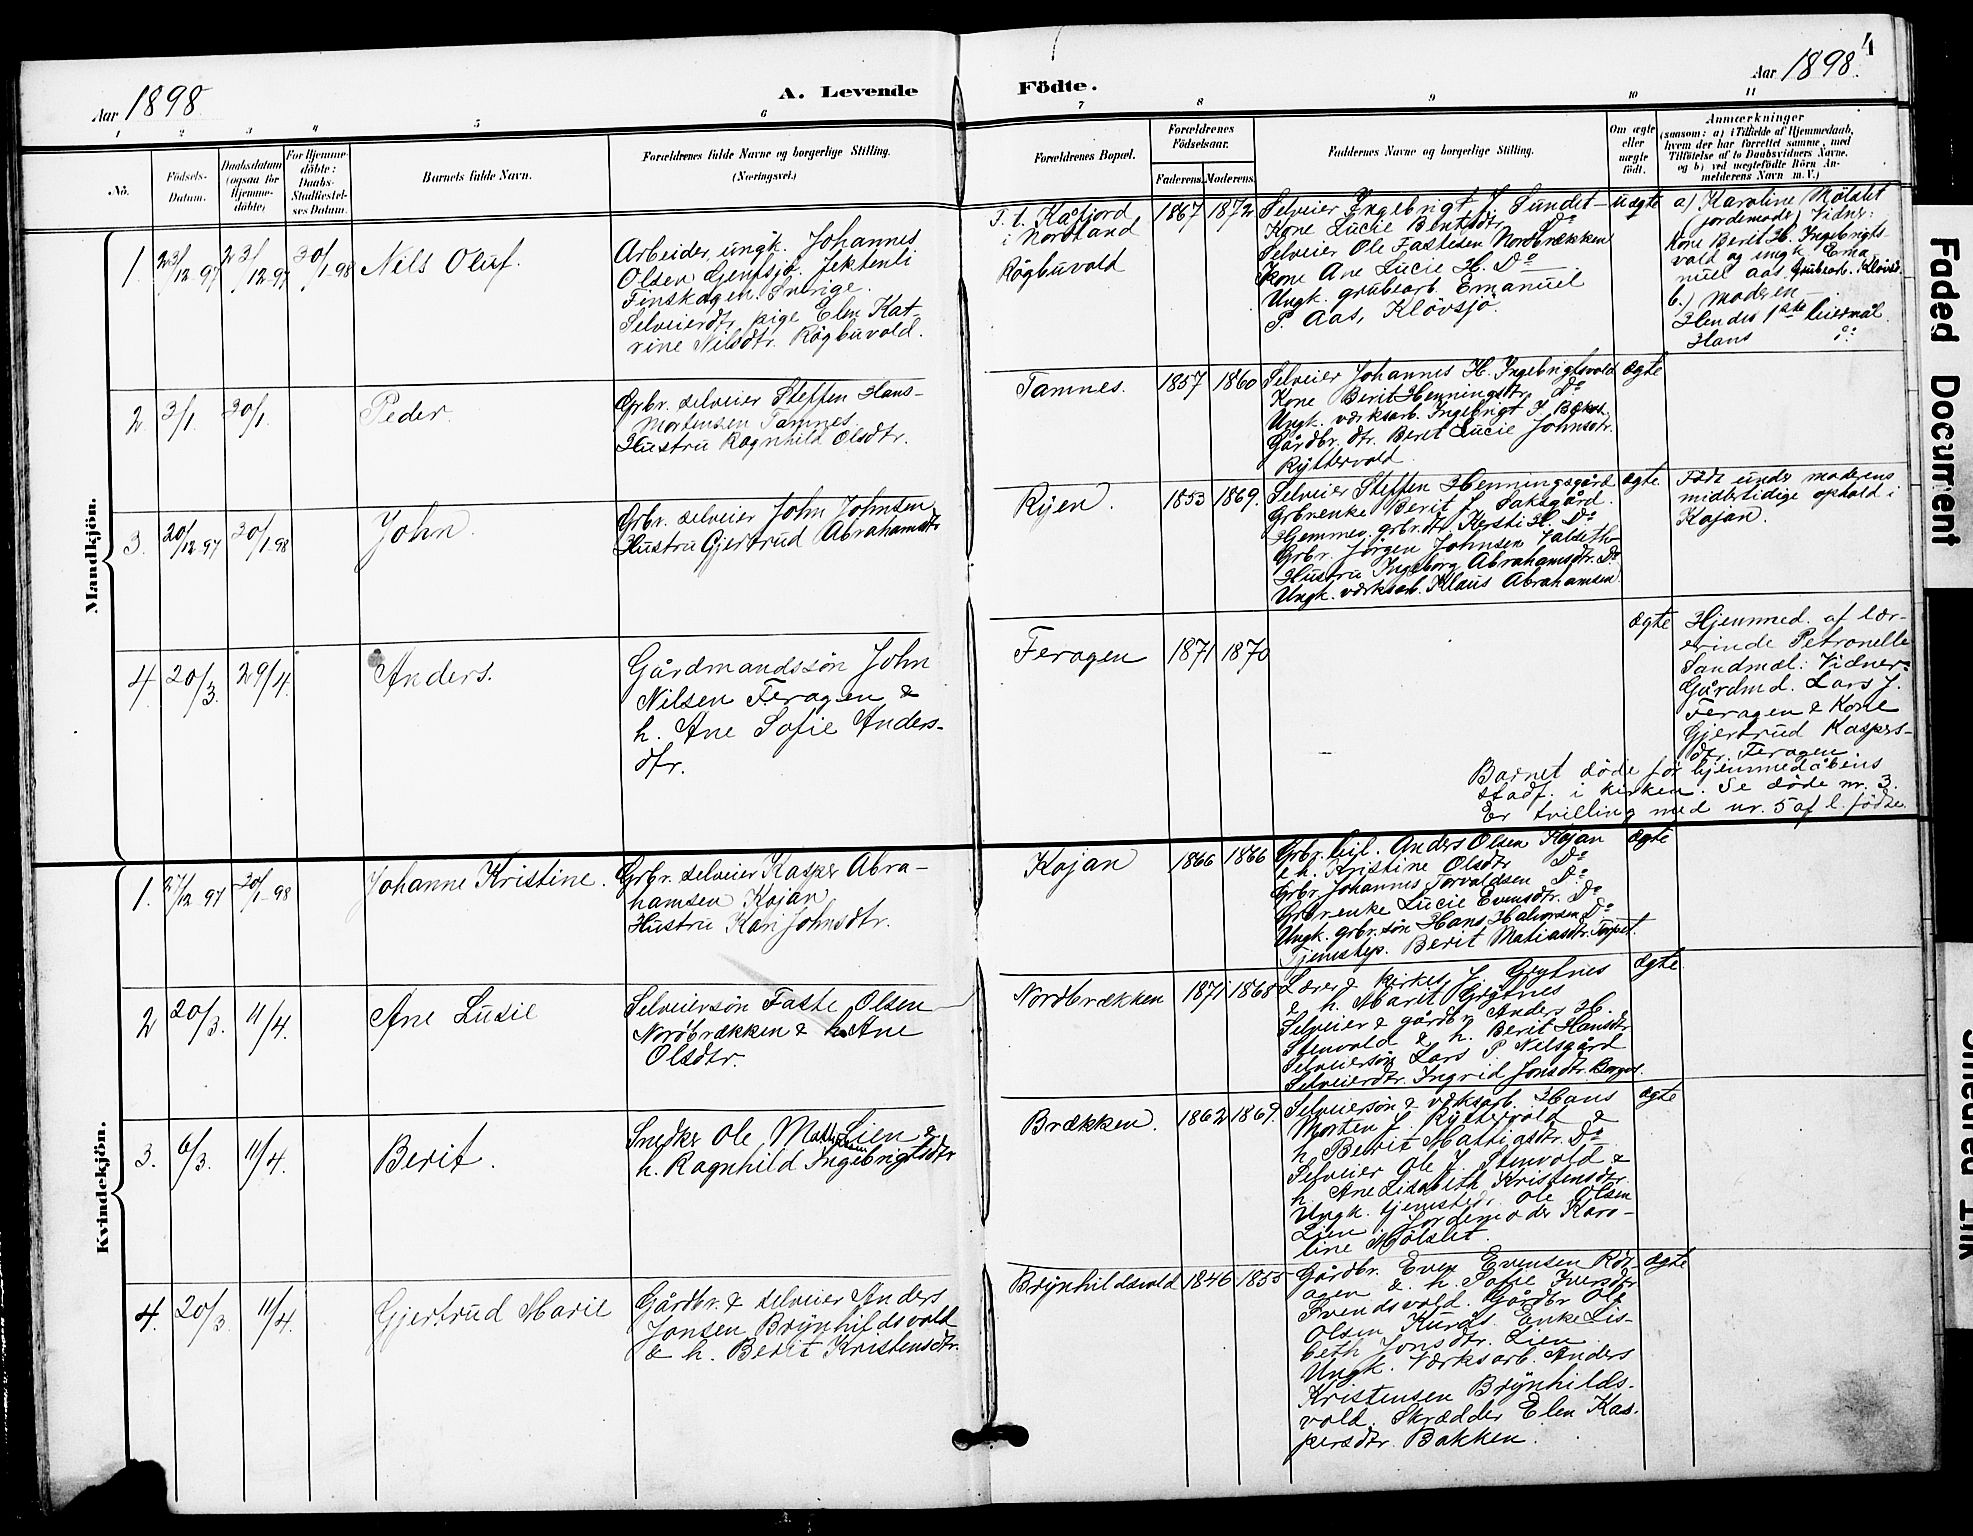 4
Aar 1898.
A. Levende
Födte.
Aar 1898.
1
2
3
4
5
6
7
8
9
10
11
No.
Födsels-
Datum.
Daabsdatum
(ogsaa for
Hjemme-
døbte)
For Hjemme-
döbte:
Daabs-
Stadfæstel-
ses Datum.
Barnets fulde Navn.
Forældrenes fulde Navne og borgerlige Stilling.
(Næringsvei.)
Forældrenes Bopæl.
Forældrenes
Födselsaar.
Faderens.
Moderens.
Faddernes Navne og borgerlige Stilling.
Om ægte
eller
uægte
födt.
Anmærkninger
(saasom: a) i Tilfælde af Hjemmedaab,
hvem der har forrettet samme, med
Tilföielse af to Daabsvidners Navne,
og b) ved uægtefödte Börn An-
melderens Navn m. V.)
Mandkjön.
1.
23/12 97
23/12.97
30/1.98
Nils Oluf.
Arbeider, ungk. Johannes
Olsen Jektenli
Finskogen. Sverige.
Selveierdtr, pige Elen Kat-
rine Nilsdtr. Rögbuvold.
F. t. Kåfjord
i Nordland
Rögbuvold
1867
1872
Selveier Ingebrigt J. Sundet
Kone Lucie Bentsdtr Do
Selveier Ole Fastesen Nordbrækken
Kone Ane Lucie H. Do
Ungk. grubearb. Emanuel
P. Aas, Klövsjö.
uægte
a) Karoline Mölslet
(jordemoder) Vidner:
Kone Berit H. Ingebrigts-
vold og ungk. Ema-
nuel Aas grubearb. Klövsj.
b.) Moderen
Hendes 1ste leiermål
Hans Do
2.
3/1.
30/1.
Peder.
Grbr. selveier Steffen Hans-
Mortensen Tamnes
Hustru Ragnhild Olsdtr.
Tamnes.
1857
1860
Selveier Johannes H. Ingebrigtsvold
Kone Berit Henningsdtr Do
Ungk. værksarb. Ingebrigt J. Bækos.
Gårdbr. dtr. Berit Lucie Johnsdtr.
Ryttervold
ægte
3.
20/12 97
30/1.98
John.
Grbr. selveier John Johnsen
Hustru Gjertrud Abrahamsdtr
Ryen.
1853
1869.
Selveier Steffen Henningsgård
Grbrenke Berit L. Saksgård.
Hjemmev. grbr.dtr Kersti H. Do
Grbr. Jörgen Johnsen Valseth
Hustru Ingeborg Abrahamsdtr. Do
Ungk. værksarb. Klaus Abrahamsen
ægte
Född under moderens
midlertidige ophold i
Kojan.
4.
20/3.
29/4.
Anders.
Gårdmandssön John
Nilsen Feragen &
h. Ane Sofie Anders-
dtr.
Feragen
1871
1870
ægte
Hjemmed. af lær-
erinde Petronelle
Sandmæl: Vidner:
Gårdmd. Lars J.
Feragen & Kone
Gjertrud Kaspers-
dtr. Feragen.
Barnet döde för hjemmedåbens
stadf. i kirken. Se döde nr. 3.
Er tvilling med nr. 5 af l. födte.
Kvindekjön.
1.
27/12 97
30/1-98
Johanne Kristine.
Grbr. selveier Kasper Abra-
hamsen Kojan
Hustru Kari Johnsdtr.
Kojan
1866
1866
Grbr. leil. Anders Olsen Kojan
& h. Kristine Olsdtr Do
Grbr. Johannes Torvaldsen Do
Grbrenke Lucie Evensdtr. Do
Ungk. grbr.sön Hans Halvorsen Do
Tjenestep. Berit Matiasdtr. Torpet.
ægte
2
20/3.
11/4.
Ane Lusie
Selveiersön Faste Olsen
Nordbrækken & h. Ane
Olsdtr.
Nordbrækken
1871
1868
Lærer & kirkes. J. Grytnes
& h. Marit Grytnes
Selveier & gårdbr. Anders H.
Stenvold & h. Berit Hansdtr
Selveiersön Lars P. Nilsgård
Selveierdtr. Ingrid Jonsdtr. Borgos.
ægte
3.
6/3.
11/4.
Berit.
Snedker Ole M. Lien &
h. Ragnhild Ingebrigtsdtr
Brækken.
1862
1869.
Selveiersön & værksarb. Hans
Morten J. Ryttervold &
h. Berit Mattiasdtr. Do
Selveier Ole J. Stenvold &
h. Ane Lisabeth Kristensdtr.
Ungk. tjenstedr. Ole Olsen
Lien. Jordemoder Karo-
line Mölslet.
ægte
4.
20/3.
11/4.
Gjertrud Marie
Gårdbr. & selveier Anders
Jonsen Brynhildsvold
& h. Berit Kristensdtr.
Brynhildsvold
1846
1855
Gårdbr. Even Evensen Rör-
agen & h. Sofie Iversdtr
Svendsvold. Gårdbr Ole
Olsen Kurås. Enke Lis-
beth Jonsdtr. Lien.
Ungk. Værksarb. Anders
Kristensen Brynhilds-
vold. Skrædder Elen Kas-
persdtr. Bakken.
ægte
Faded Document
Smeared Ink